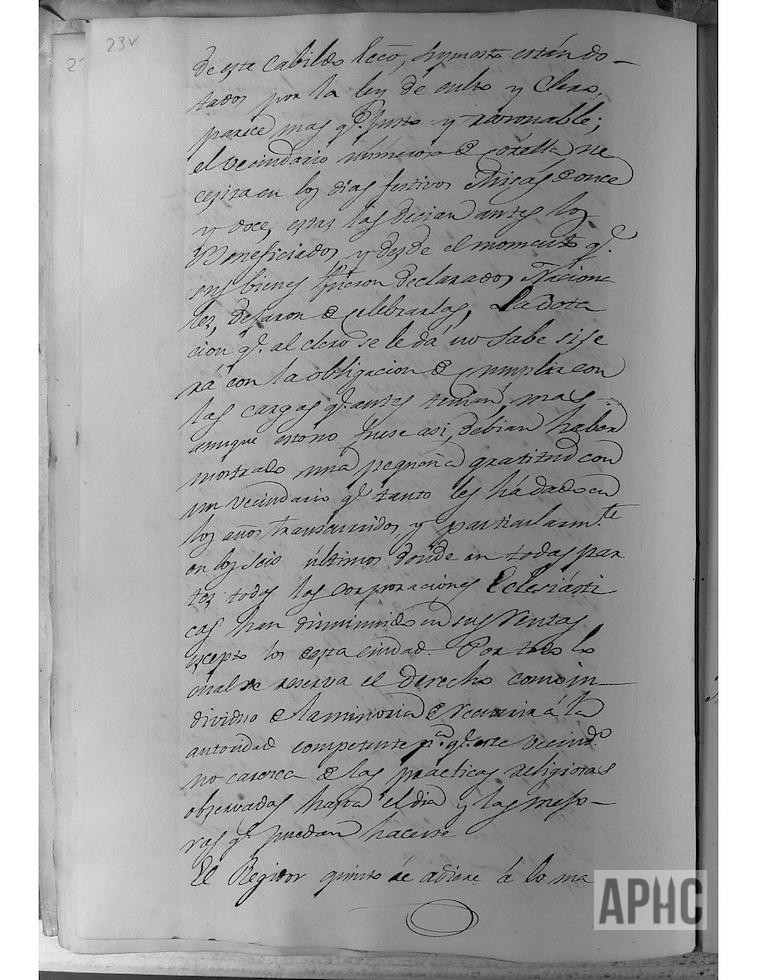 23v
de este Cabildo Ecco, supuesto están do-
tados por la ley de culto y Clero,
parece mas q.e justo y razonable;
el vecindario numeroso de Corella ne
cesita en los dias festivos Misas de once
y doce, estas las decian antes los
Beneficiados, y desde el momento q.e
sus bienes fueron declarados Naciona
les, dejaron de celebrarlas, La dota
cion q.e al clero se le dá no sabe si se
rá con la obligacion de cumplir con
las cargas q.e antes tenian, mas
aunque esto no fuese asi, debian haber
mostrado una pequeña gratitud con
un vecindario q.e tanto les há dado en
los años transcurridos, y particularm.te
en los seis últimos donde en todas par
tes todas las corporaciones Eclesiásti
cas han disminuido en sus Rentas
escepto los de esta ciudad. Por todo lo
cual se reserva el derecho como in-
dividuo de la minoria de recurrir á la
autoridad competente p.a q.e este vecind.o
no carezca de las practicas religiosas
observadas hasta el dia y las mejo-
ras q.e puedan hacerse
El Regidor quinto se adiere á lo ma
APHC